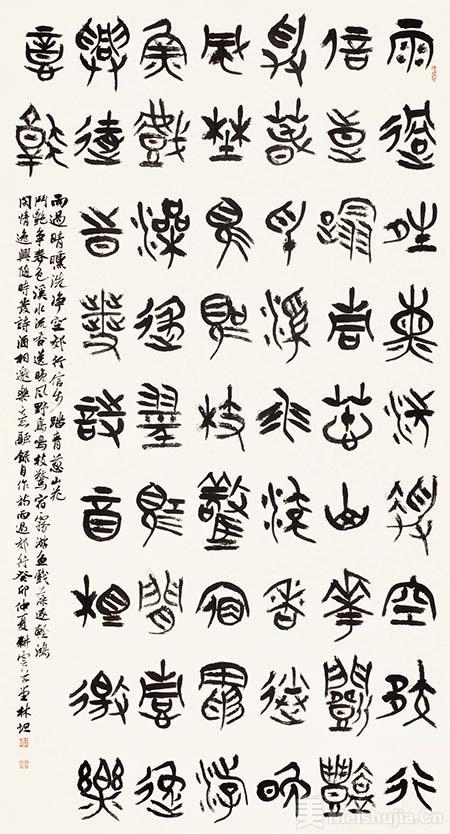 雨過晴曛洗淨空郊行
信步踏青蔥山花鬥艷
爭春色溪水流香送晚
風野鳥鳴枝驚宿霧游
魚戲藻逐鴻閒情逸
興隨時發詩酒相邀樂
意融
雨過晴曛洗淨空郊行信步踏青蔥山花
鬥艷爭春色溪水流香送晚風野鳥鳴枝驚宿霧游魚戲藻逐鴻
閒情逸興隨時發詩酒相邀樂意融錄自作詩雨過郊行癸卯仲夏耕雲草堂林坦
美 Meishujia.Cn